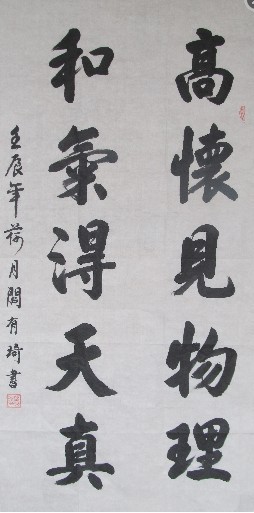 高懷見物理
和氣得天真
壬辰年荷月閻有琦書